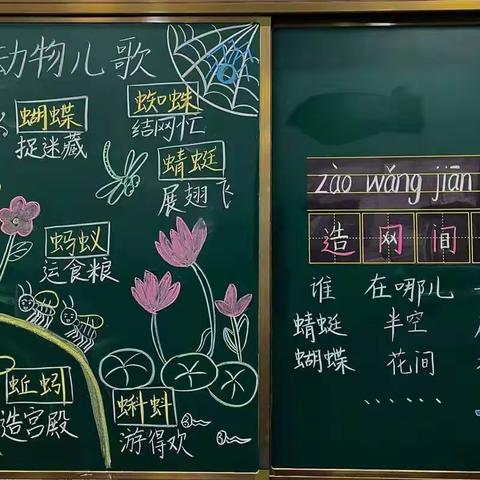 动物儿歌
蝴蝶
捉迷藏
蜘蛛
结网忙
蜻蜓
展翅飞
蚂蚁
运食粮
蚯蚓
造宫殿
蝌蚪
游得欢
zào wǎng jiān
造 网 间
谁 在哪儿
蜻蜓 半空
蝴蝶 花间
……